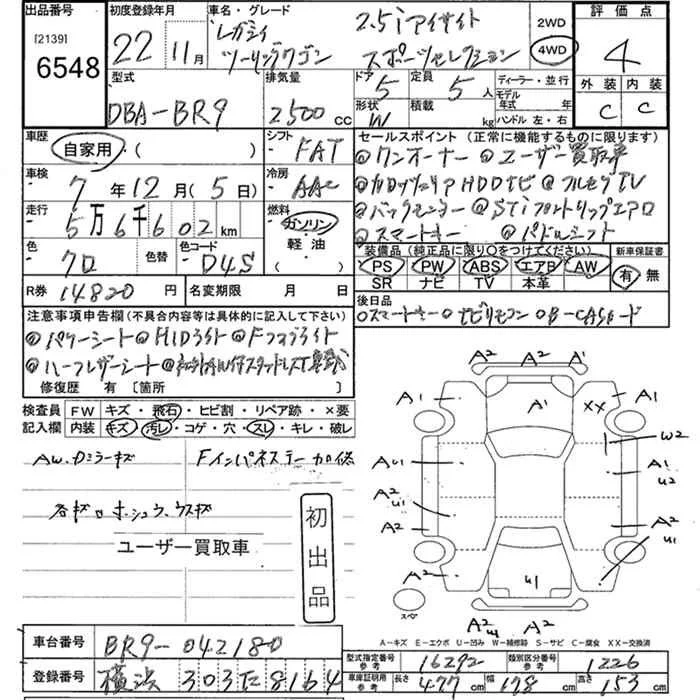 出品番号 初度登録年月 車名・グレード 2WD 評価点
[2139] 22 11月 レガシィ 2.5iアイサイト 4WD 4
6548 ツーリングワゴン スポーツセレクション
型式 排気量 ドア 5 定員 5人 ディーラー・並行 外装 内装
DBA-BR9 2500cc 形状 W 積載 kg モデル年式 年式 ハンドル 左・右 C C
車歴 自家用・( ) シフト FAT セールスポイント (正常に機能するものに限ります)
◎ワンオーナー ◎ユーザー買取車
車検 7年12月(5日) 冷房 AAC
◎カロッツェリアHDDナビ ◎フルセグTV
走行 5万6千602km 燃料 ガソリン 軽油・( )
◎バックモニター ◎STiフロントリップエアロ
◎スマートキー ◎パドルシフト
色 クロ 色替 色コード D4S
装備品 (純正品に限り○をつけてください) 新車保証書
PS PW ABS エアB AW 有・無
SR ナビ TV 本革
R券 14820円 名変期限 月 日
後日品
○スマートキー○ナビリモコン○B-CASカード
注意事項申告欄 (不具合内容等は具体的に記入して下さい)
◎パワーシート◎HIDライト◎Fフォグライト
◎ハーフレザーシート
修復歴 有 〔箇所 〕
検査員 FW キズ・飛石・ヒビ割・リペア跡・×要
記入欄 内装 キズ・汚レ・コゲ・穴・スレ・キレ・破レ
AW.ドミラーキズ Fインパネステー加修
各キズ
ユーザー買取車
初出品
A2 A2 A1
A1 A1 XX A1
W2
AU1 A1 U2
A2 U1
A2 A2 U1
A2 U1 A2
スペア
A2 U1 A2
A-キズ E-エクボ U-凹み W-補修跡 S-サビ C-腐食 XX-交換済
車台番号 BR9-042180
型式指定番号 参考 16292 類別区分番号 参考 1226
登録番号 横浜 303 た 8164
車庫証明用 参考 長さ 477cm 幅 178cm 高さ 153cm